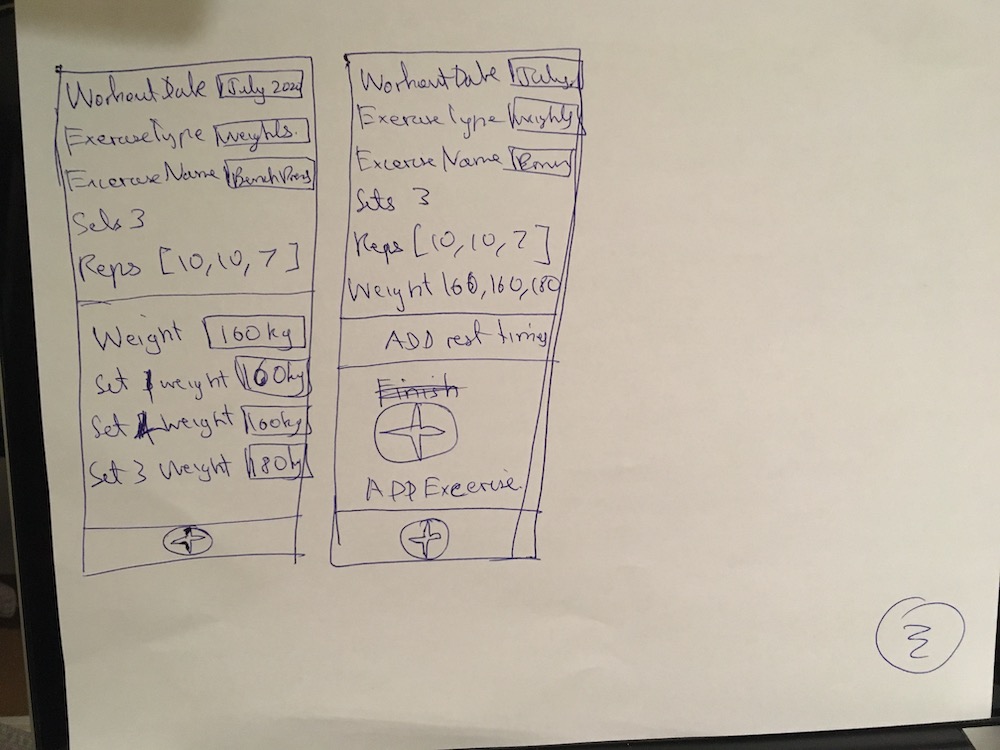 Workout Date July 2020
Exercise Type Weights.
Excercise Name Bench Press
Sets 3
Reps [10, 10, 7]
Weight 160 kg
Set 1 weight 160kg
Set Weight 160kg
Set 3 Weight 180kg
Workout Date July
Exercise Type Weights
Excercise Name
Sets 3
Reps [10, 10, 7]
Weight 160, 160, 180
ADD rest timing
Finish
ADD Excercise
3